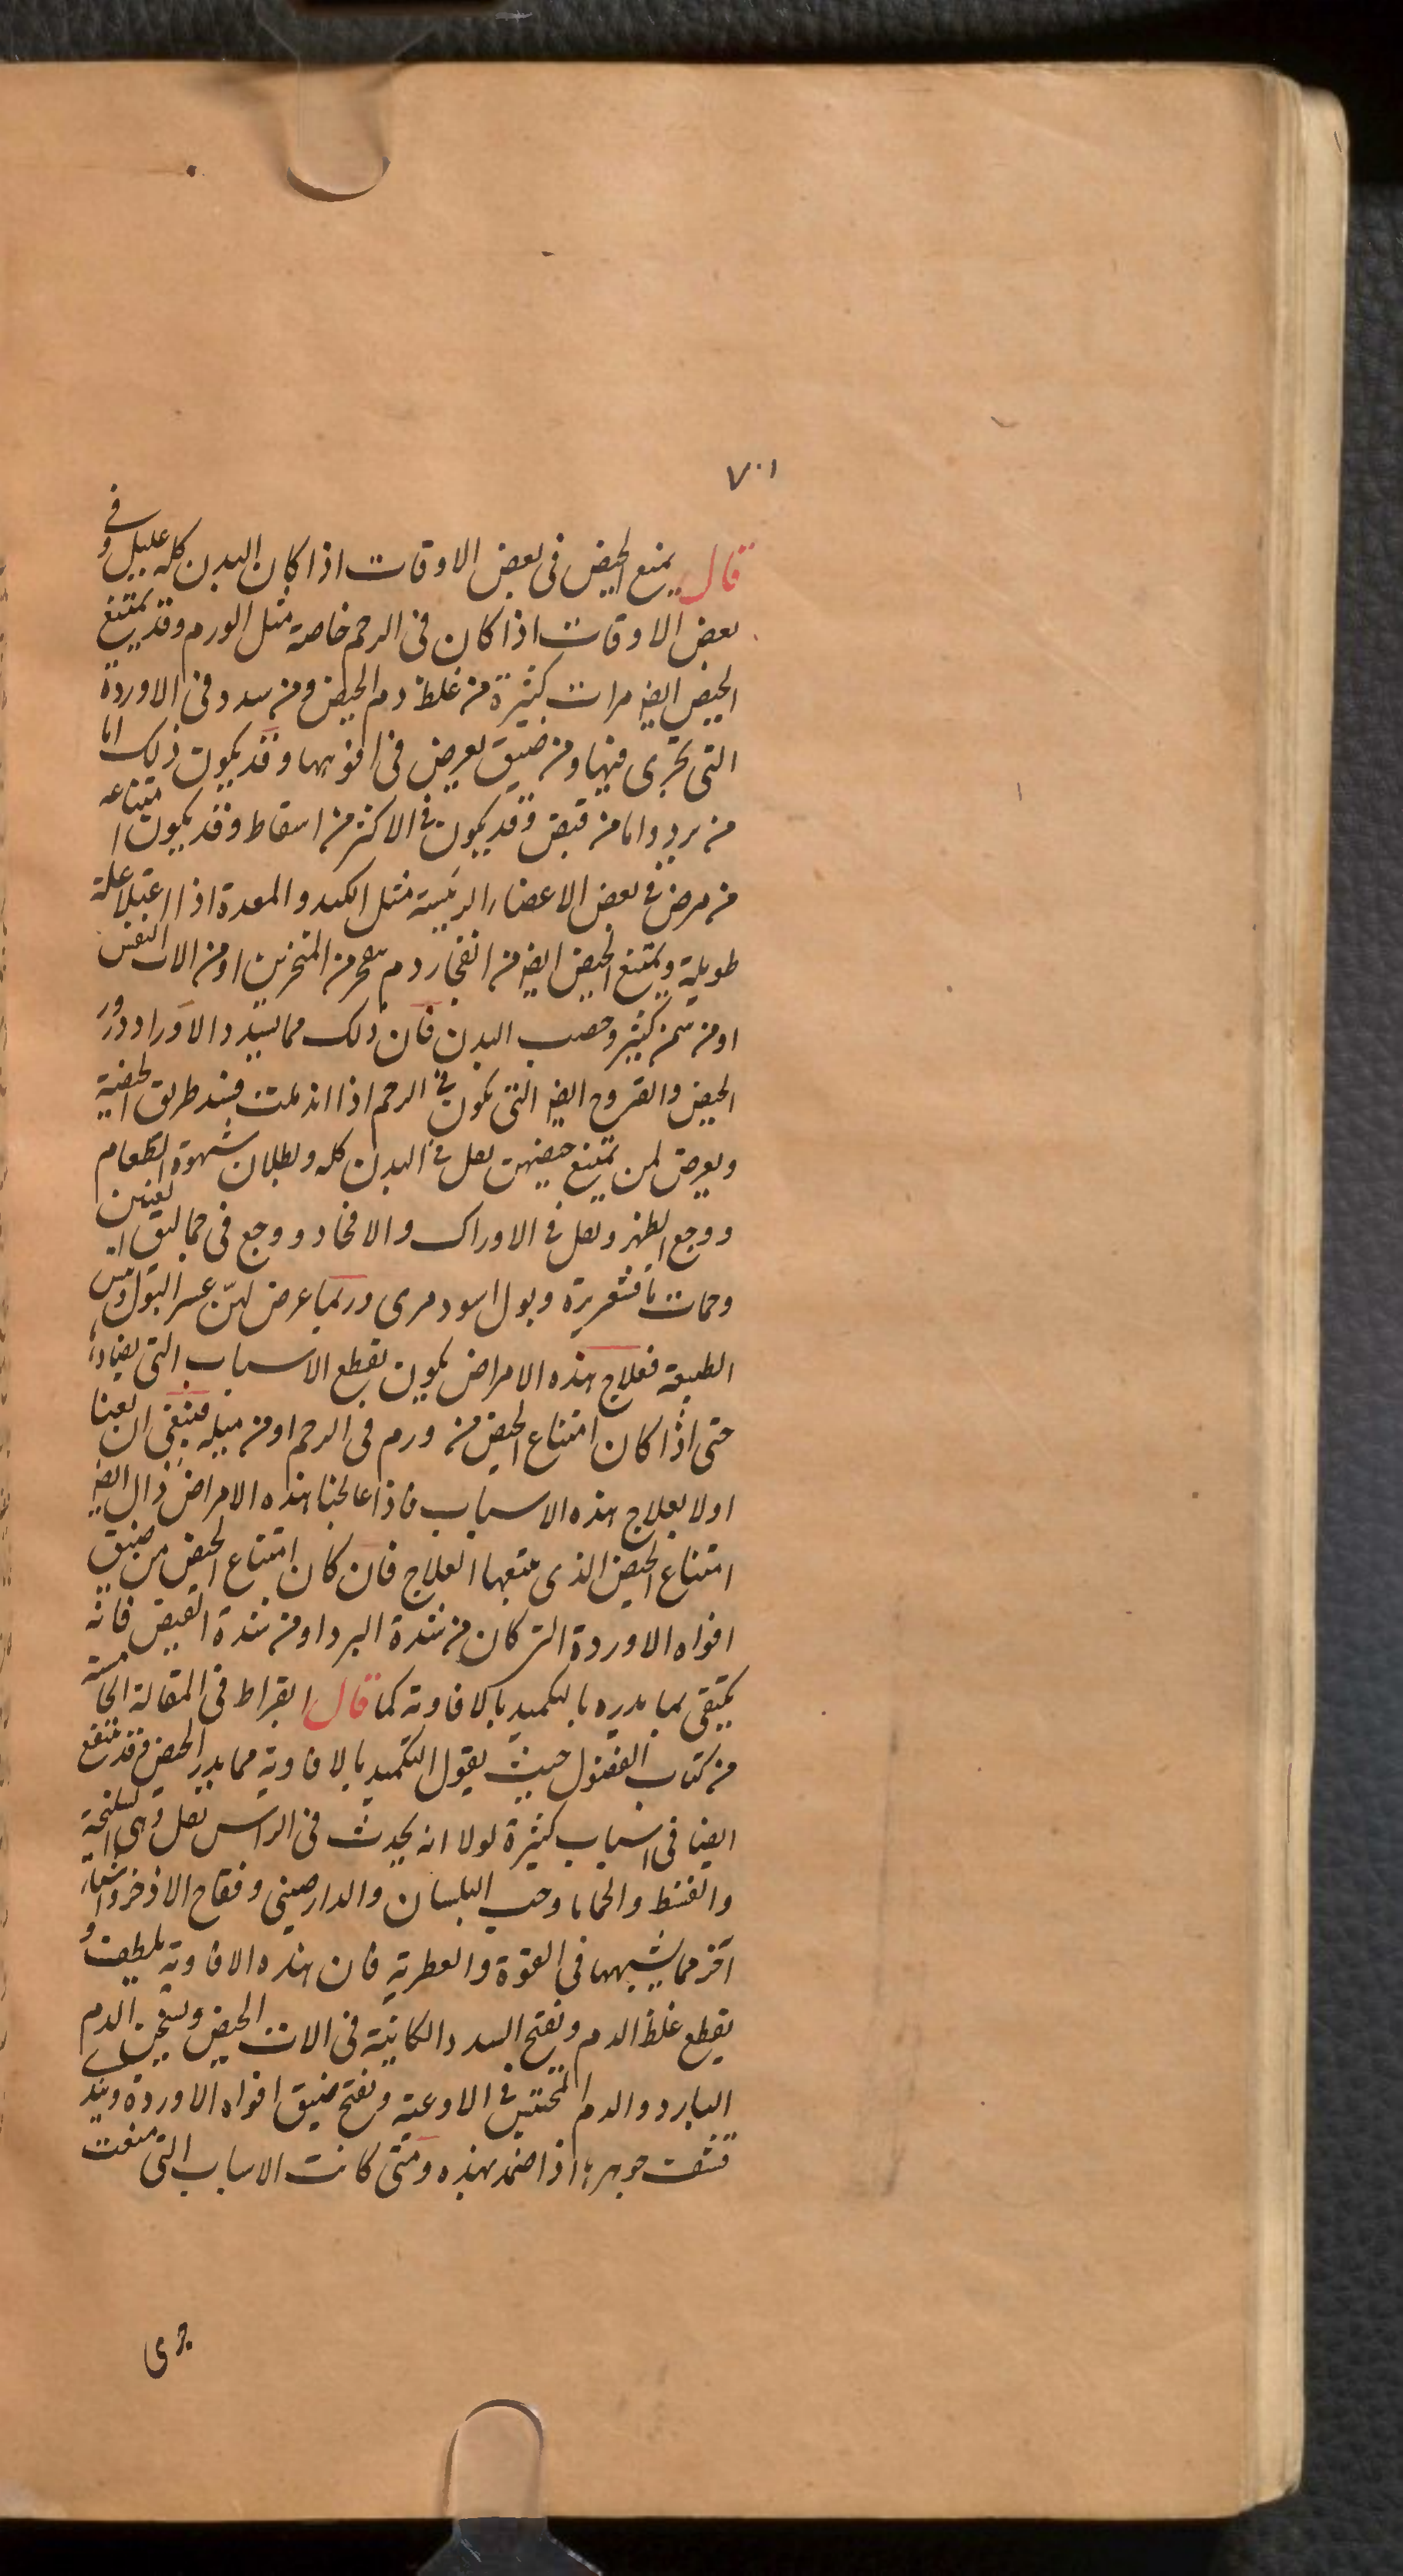 ٧٠١
قال يمنع الحيض فى بعض الاوقات اذا كان البدن كله عليل وفى
بعض الاوقات اذا كان فى الرحم خاصة مثل الورم وقد يمتنع
الحيض ايضا مرات كثيرة من غلظ دم الحيض ومن سدد فى الاوردة
التى تجرى فيها ومن ضيق يعرض فى افواهها وقد يكون ذلك اما
من برد واما من قبض وقد يكون فى الاكثر من اسقاط وقد يكون امتناعه
من مرض فى بعض الاعضاء الرئيسة مثل الكبد والمعدة اذا اعتلا علة
طويلة ويمتنع الحيض ايضا من انفجار دم من المنخرين او من الات النفس
او من سمن كثير وخصب البدن فان ذلك مما يسدد الاوراد ودرور
الحيض والقروح ايضا التى تكون فى الرحم اذا اندملت فسد طريق الحيضة
ويعرض لمن يمتنع حيضهن ثقل فى البدن كله وبطلان شهوة الطعام
ووجع الظهر وثقل فى الاوراك والافخاد ووجع فى حماليق العينين
وحمات نافقشعريرة وبول اسود مرى وربما عرض لهن عسر البول ويبس
الطبيعة فعلاج هذه الامراض يكون بقطع الاسباب التى يضادها
حتى اذا كان امتناع الحيض من ورم فى الرحم او من ميله فينبغى ان يعنا
اولا بعلاج هذه الاسباب فاذا عالجنا هذه الامراض زال ايضا
امتناع الحيض الذى يتبعها العلاج فان كان امتناع الحيض من ضيق
افواه الاوردة التى كان من شدة البرد او من شدة القبض فانه
يكتفى بما يدره بالتكميد بالافاوية كما قال ابقراط فى المقالة الخامسة
من كتاب الفصول حيث يقول التكميد بالافاوية مما يدر الحيض وقد ينتفع
ايضا فى اسباب كثيرة لولا انه يحدث فى الراس ثقل وهى السليخة
والقسط والحماما وحب البلسان والدارصينى وفقاح الاذخر واشياء
اخر مما يشبهها فى القوة والعطرية فان هذه الافاوية يلطف و
يقطع غلظ الدم وتفتح السدد الكاينة فى الات الحيض ويسخن الدم
البارد والدم المحتبس فى الاوعية وتفتح ضيق افواه الاوردة
جوهرها اذا ضمد بهذه ومتى كانت الاسباب التى منعت
جرى